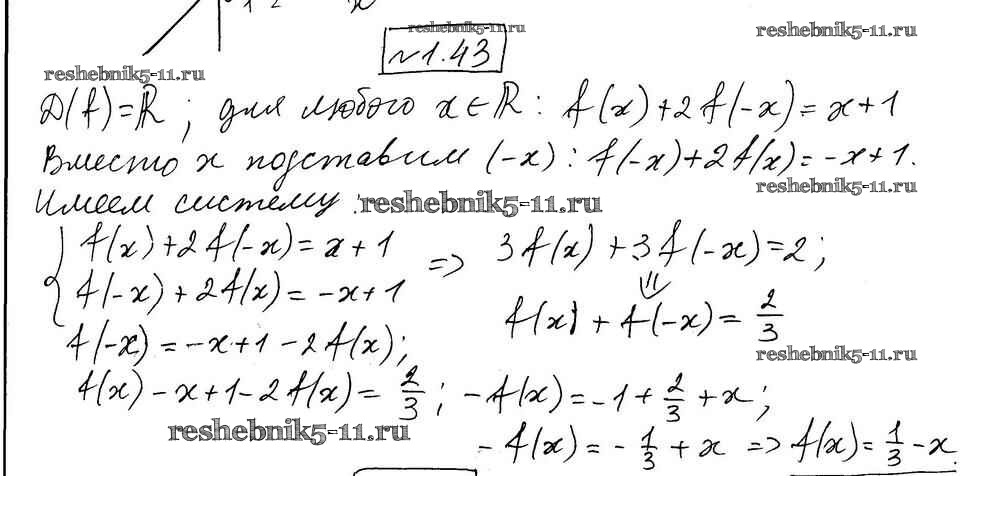 1 2 x
reshebnik5-11.ru
reshebnik5-11.ru
№1.43
reshebnik5-11.ru
D(f)=ℝ; для любого x∈ℝ: f(x)+2f(-x)=x+1
Вместо x подставим (-x): f(-x)+2f(x)=-x+1.
reshebnik5-11.ru
Имеем систему: reshebnik5-11.ru
{ f(x)+2f(-x)=x+1 => 3f(x)+3f(-x)=2;
f(-x)+2f(x)=-x+1
f(x)+f(-x)=2/3
f(-x)=-x+1-2f(x);
reshebnik5-11.ru
f(x)-x+1-2f(x)=2/3; -f(x)=-1+2/3+x;
reshebnik5-11.ru
-f(x)=-1/3+x => f(x)=1/3-x.